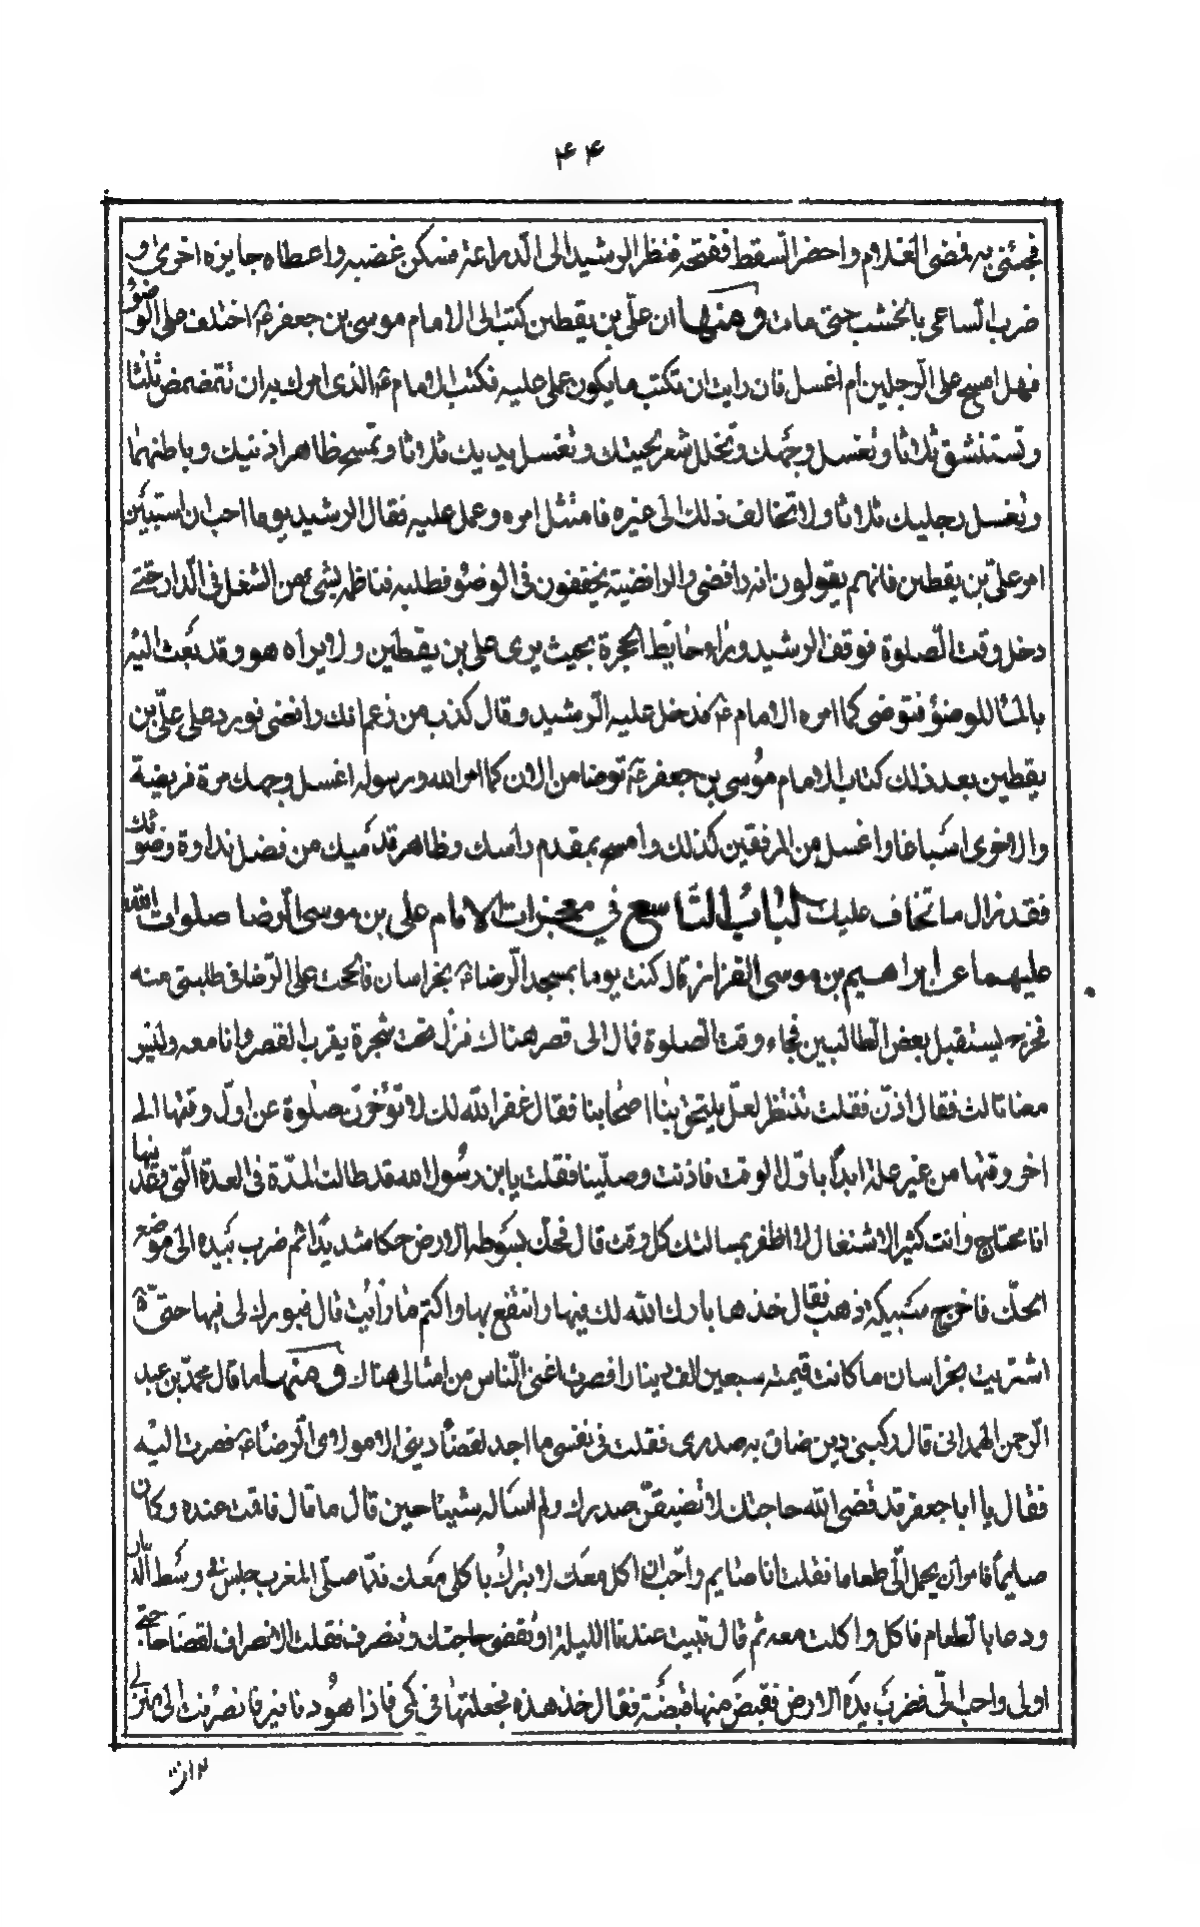 ۴۴
فجئنی به فمضی الغلام واحضر السفط ففتحه فنظر الرشید الی الدراعة فسکن غضبه واعطاه جایزه اخری و
ضرب الساعی بالخشب حتی مات ومنها ان علی بن یقطین کتب الی الامام موسی بن جعفر ع اختلف علی الوضوء
فهل امسح علی الرجلین ام اغسل فان رایت ان تکتب ما یکون عملی علیه فکتب الامام ع الذی امرک به ان تتمضمض ثلثا
وتستنشق ثلاثا وتغسل وجهک وتخلل شعر لحیتک وتغسل یدیک ثلاثا وتمسح ظاهر اذنیک وباطنهما
وتغسل رجلیک ثلاثا ولا تخالف ذلک الی غیره فامتثل امره وعمل علیه فقال الرشید یوما احب ان استبین
امر علی بن یقطین فانهم یقولون انه رافضی والرافضیة یخففون فی الوضوء فطلبه فناظه بشیء من الشغل فی الدار حتی
دخل وقت الصلوة فوقف الرشید وراء حایط الحجرة بحیث یری علی بن یقطین ولا یراه هو وقد بعث الیه
بالماء للوضوء فتوضی کما امره الامام ع فدخل علیه الرشید وقال کذب من زعم انک رافضی فورد علی علی بن
یقطین بعد ذلک کتاب الامام موسی بن جعفر ع توضا من الان کما امر الله ورسوله اغسل وجهک مرة فریضة
والاخری اسباغا واغسل من المرفقین کذلک وامسح بمقدم راسک وظاهر قدمیک من فضل نداوة وضوئک
فقد زال ما تخاف علیک الباب التاسع فی معجزات الامام علی بن موسی الرضا صلوات الله
علیهما عن ابراهیم بن موسی القزاز قال کنت یوما بمسجد الرضا ع بخراسان فالححت علی الرضا فی طلبتی منه
فخرج یستقبل بعض الطالبین فجاء وقت الصلوة فمال الی قصر هناک فنزل تحت شجرة یقرب القصر وانا معه ولیس
معنا ثالث فقال اذن فقلت ننتظر لعل یلحق بنا اصحابنا فقال غفر الله لک لا تؤخرن صلوة عن اول وقتها الی
اخر وقتها من غیر علة ابدا باول الوقت فاذنت وصلینا فقلت یا ابن رسول الله قد طالت المدة فی العدة التی وعدتنیها
انا محتاج وانت کثیر الاشتغال لا اظفر بمسالتک کل وقت قال فحک بسوطه الارض حکا شدیدا ثم ضرب بیده الی موضع
الحک فاخرج سبیکة ذهب فقال خذها بارک الله لک فیها وانتفع بها واکتم ما رایت قال فبورک لی فیها حتی
اشتریت بخراسان ما کانت قیمته سبعین الف دینارا فصرت اغنی الناس من امثالی هناک ومنها ما قال محمد بن عبد
الرحمن الهمدانی قال رکبنی دین ضاق به صدری فقلت فی نفسی ما اجد لقضاء دینی الا مولای الرضا ع فصرت الیه
فقال یا ابا جعفر قد قضی الله حاجتک لا تضیقن صدرک ولم اساله شیئا حین قال ما قال فاقمت عنده وکان
صایما فامر ان یحمل الی طعاما فقلت انا صایم واحب ان اکل معک لا تبرک باکلی معک فلما صلی المغرب جلس فی وسط الدار
ودعا بالطعام فاکل واکلت معه ثم قال تبیت عندنا اللیلة او تقضی حاجتک وتنصرف فقلت الانصراف لقضا حاجتی
اولی واحب الی فضرب یده الارض فقبض منها قبضة فقال خذ هذه فجعلتها فی کمی فاذا هو دنانیر فانصرفت الی منزلی